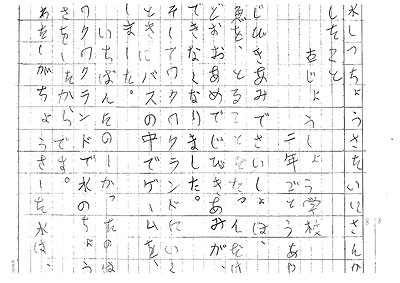 水しつちょうさたいにさんか
したこと
うしょう学校
二年ごとうあ
じびきあみでさいしょは、
魚を、とる
どおおあめでじびきあみが、
できなくなりました。
そしてワクワクランドにいく
ときにバスの中でゲームを、
しました。
いちばんたのしかったのは
ワクワクランドで水のちょう
さをしたから、です。
わたしがちょうさした水は、